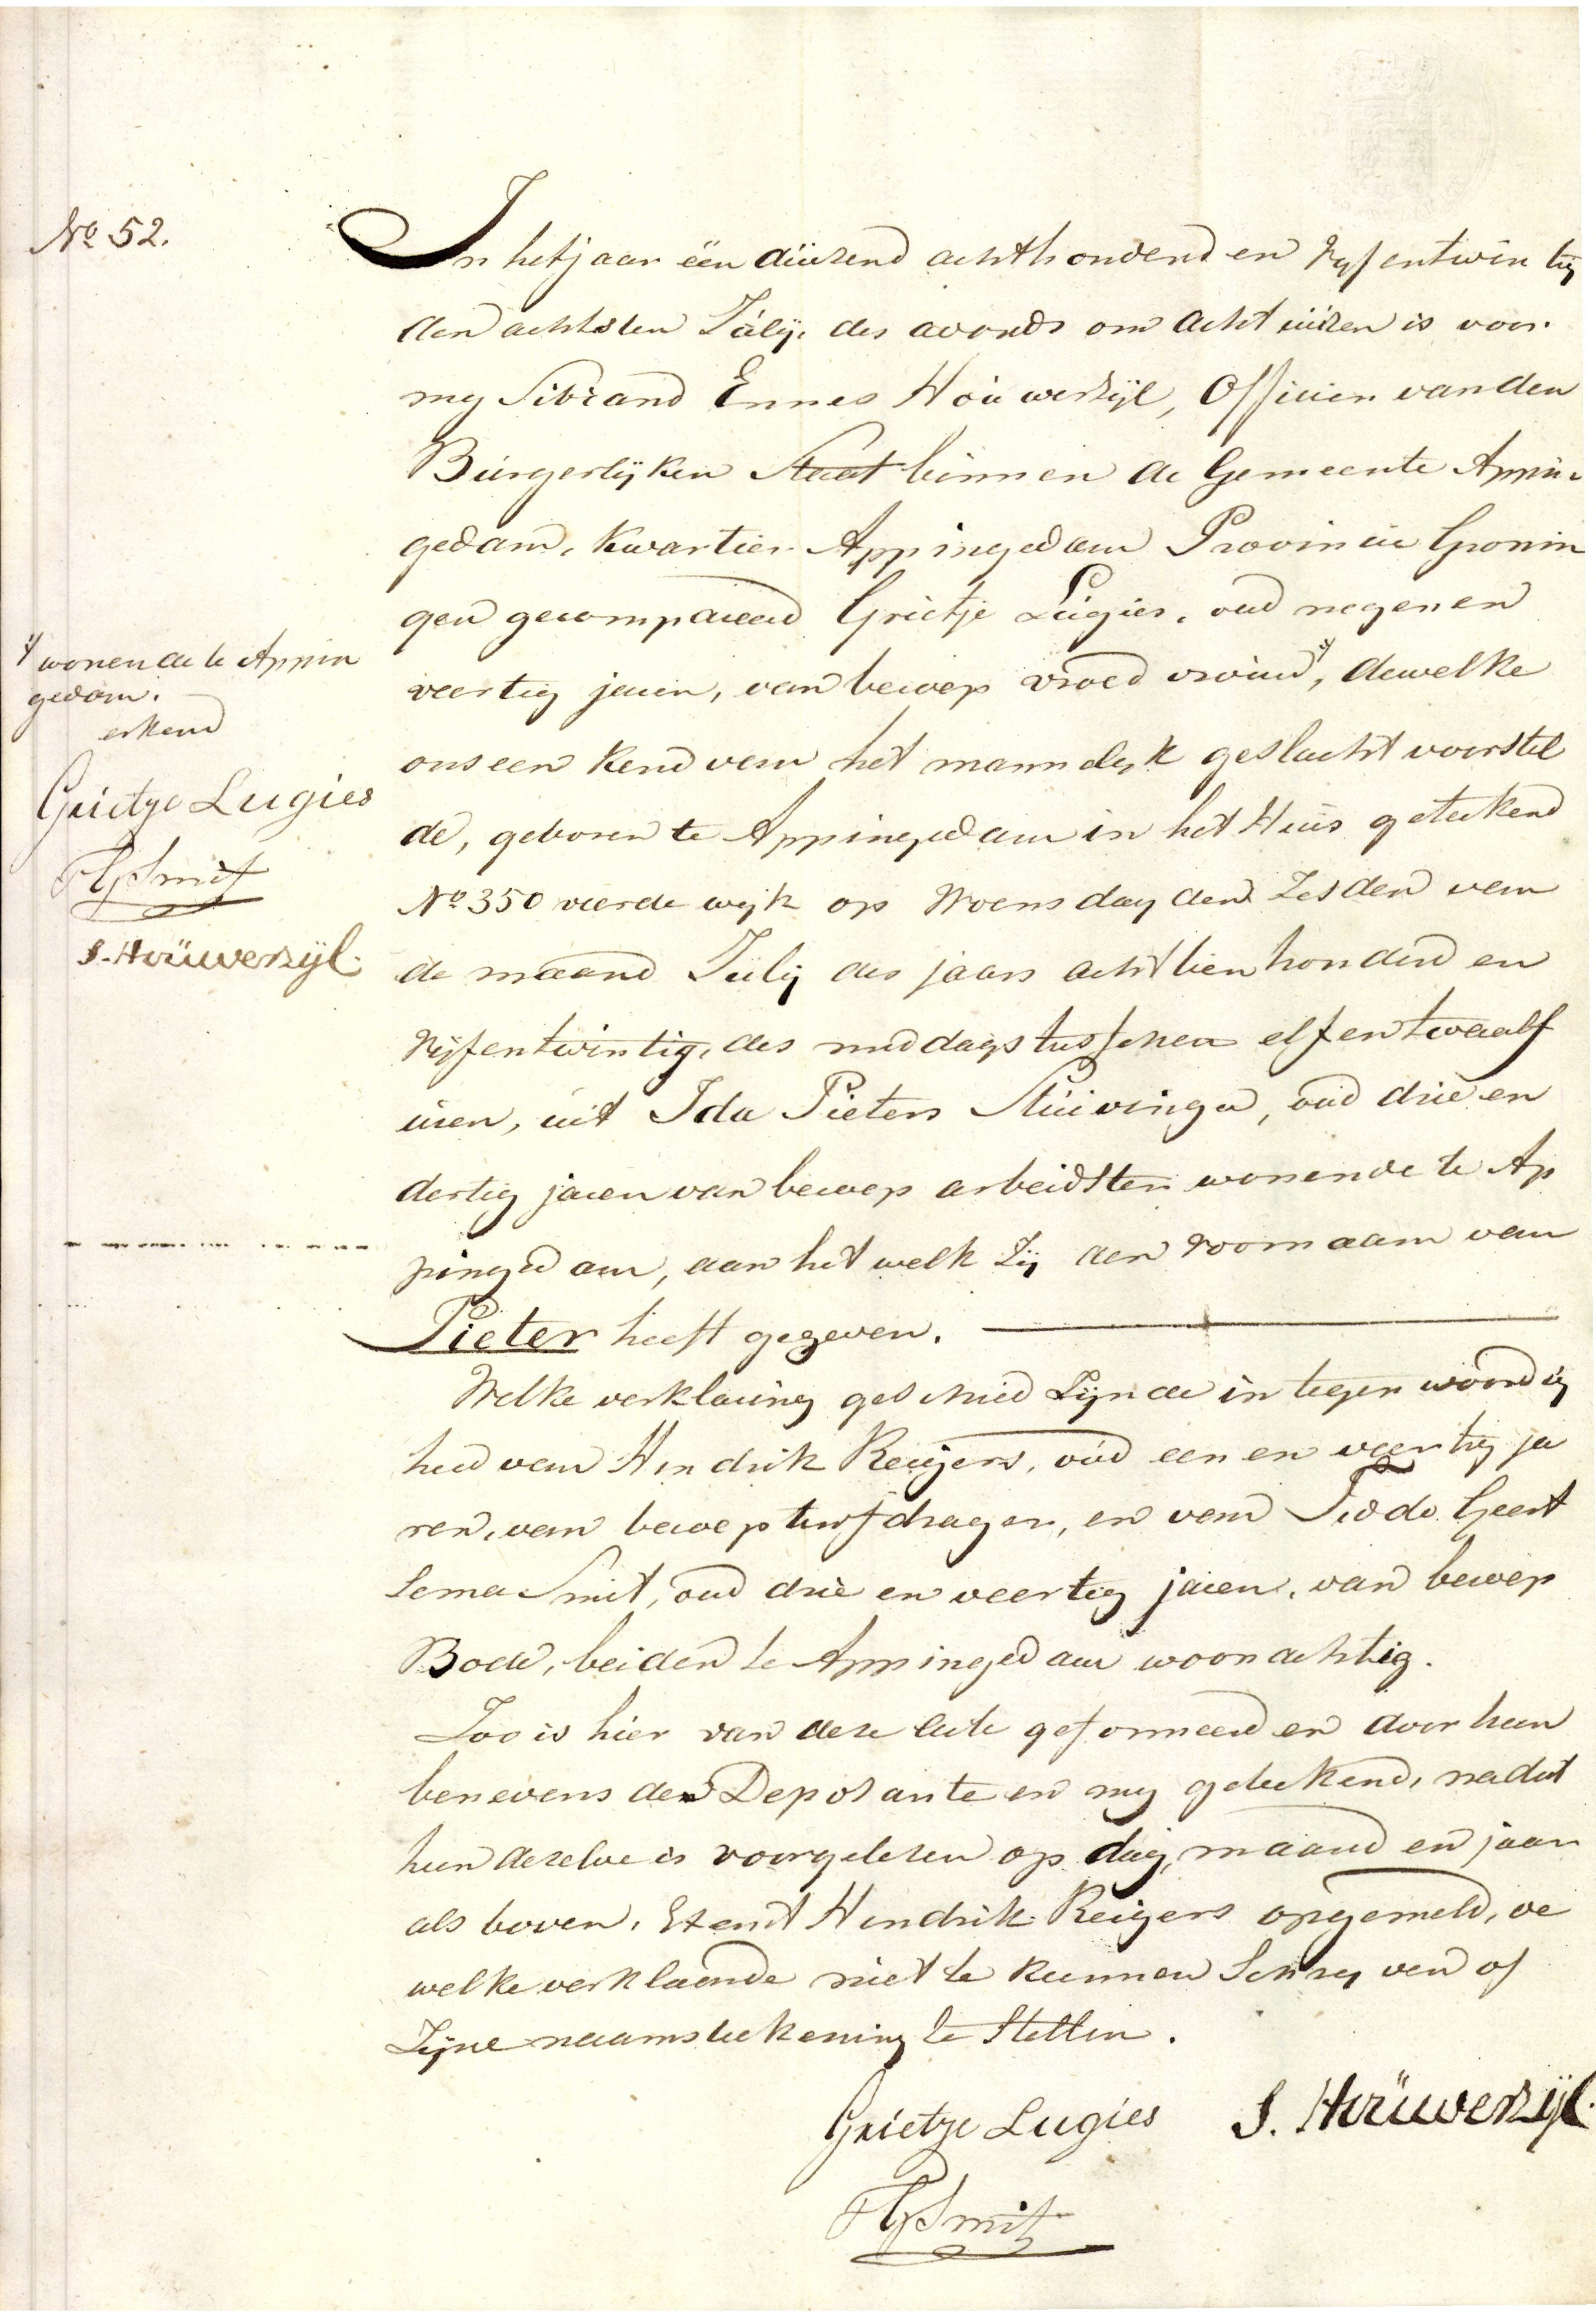 No 52.
In het jaar één duizend achthonderd en vyfentwintig
den achtsten Julij, des avonds om acht uuren is voor
my Sibrand Ennes Houwerzyl, Officier van den
Burgerlijken Staat binnen de Gemeente Appin-
gedam, kwartier Appingedam Provincie Gronin
gen gecompareerd Grietje Lugies, oud negen en
veertig jaren, van beroep vroed vrouw, dewelke
ons een kend van het mannelyk geslacht voorstel
de, geboren te Appingedam in het Huis getekend
No 350 vierde wyk op Woensdag den Zesden van
de maand Julij des jaars achttien honderd en
vyfentwintig, des middags tusschen elf en twaalf
uren, uit Ida Pieters Stuivinga, oud drie en
dertig jaren van beroep arbeidster wonende te Ap
pingedam, aan het welk Zij den voornaam van
Pieter heeft gegeven.
Welke verklaring geschied Zijnde in tegenwoordig
heid van Hendrik Reigers, oud een en veertig ja
ren, van beroep turfdrager, en van Tiddo Geert
sema Smit, oud drie en veertig jaren, van beroep
Bode, beiden te Appingedam woonachtig.
Zoo is hier van deze acte geformeerd en door hun
benevens den Deposante en my geteekend, nadat
hun dezelve is voorgelezen op dag, maand en jaar
als boven, Exempt Hendrik Reigers opgemeld, de
welke verklaarde niet te kunnen Schryven of
Zijne naamsteekening te Stellen.
Grietje Lugies S. Houwerzijl.
TGSmit
wonende te Appin
gedam.
erkend
Grietje Lugies
TGSmit
S. Houwerzijl.